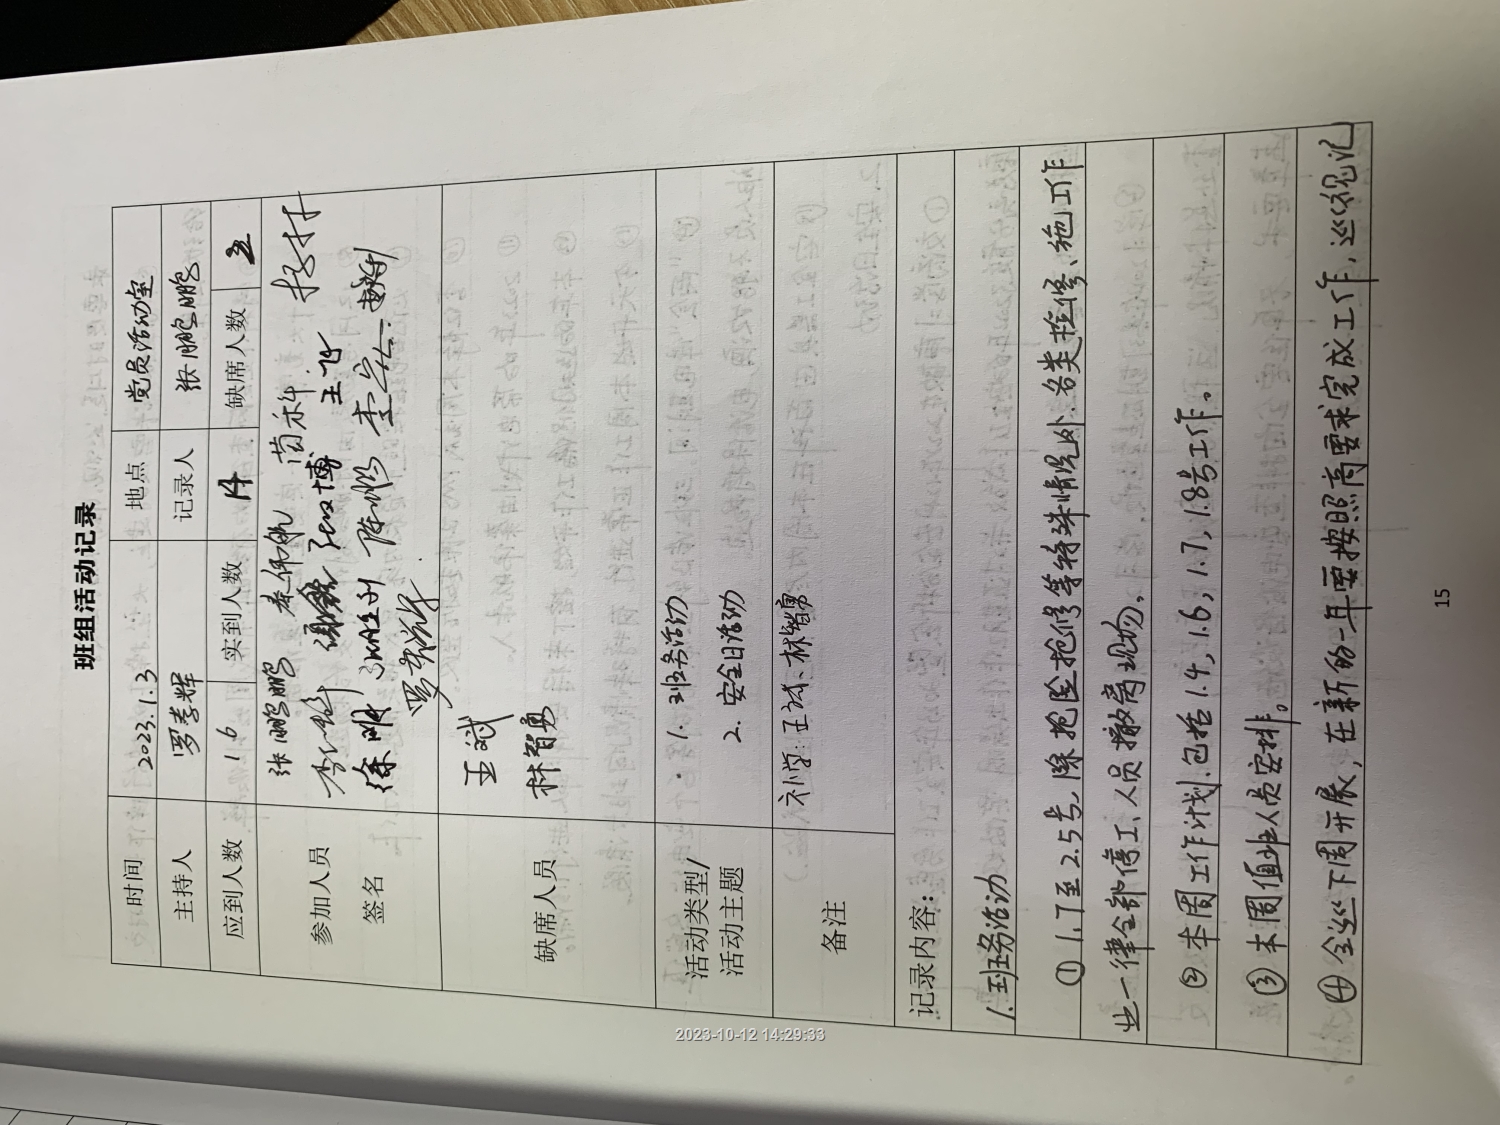 班组活动记录
时间 2023.1.3 地点 党员活动室
主持人 罗孝辉 记录人 张鹏鹏
应到人数 16 实到人数 14 缺席人数 2
参加人员
签名
张鹏鹏 秦仰帆 苗科
王飞
徐明 陈彤 李宏
缺席人员
王斌
林智勇
活动类型/
活动主题
1. 班务活动
2. 安全日活动
备注 补学:王斌、林智勇
记录内容:
1. 班务活动
① 1.1至2.5号,除抢险抢修等特殊情况外,各类检修、施工作
业一律全部停工、人员撤离现场。
② 本周工作计划:包括1.4,1.6,1.7,1.8号工作。
③ 本周值班人员安排。
④ 全巡下周开展,在新的一年要按照高要求完成工作,巡视记
15
2023-10-12 14:29:33